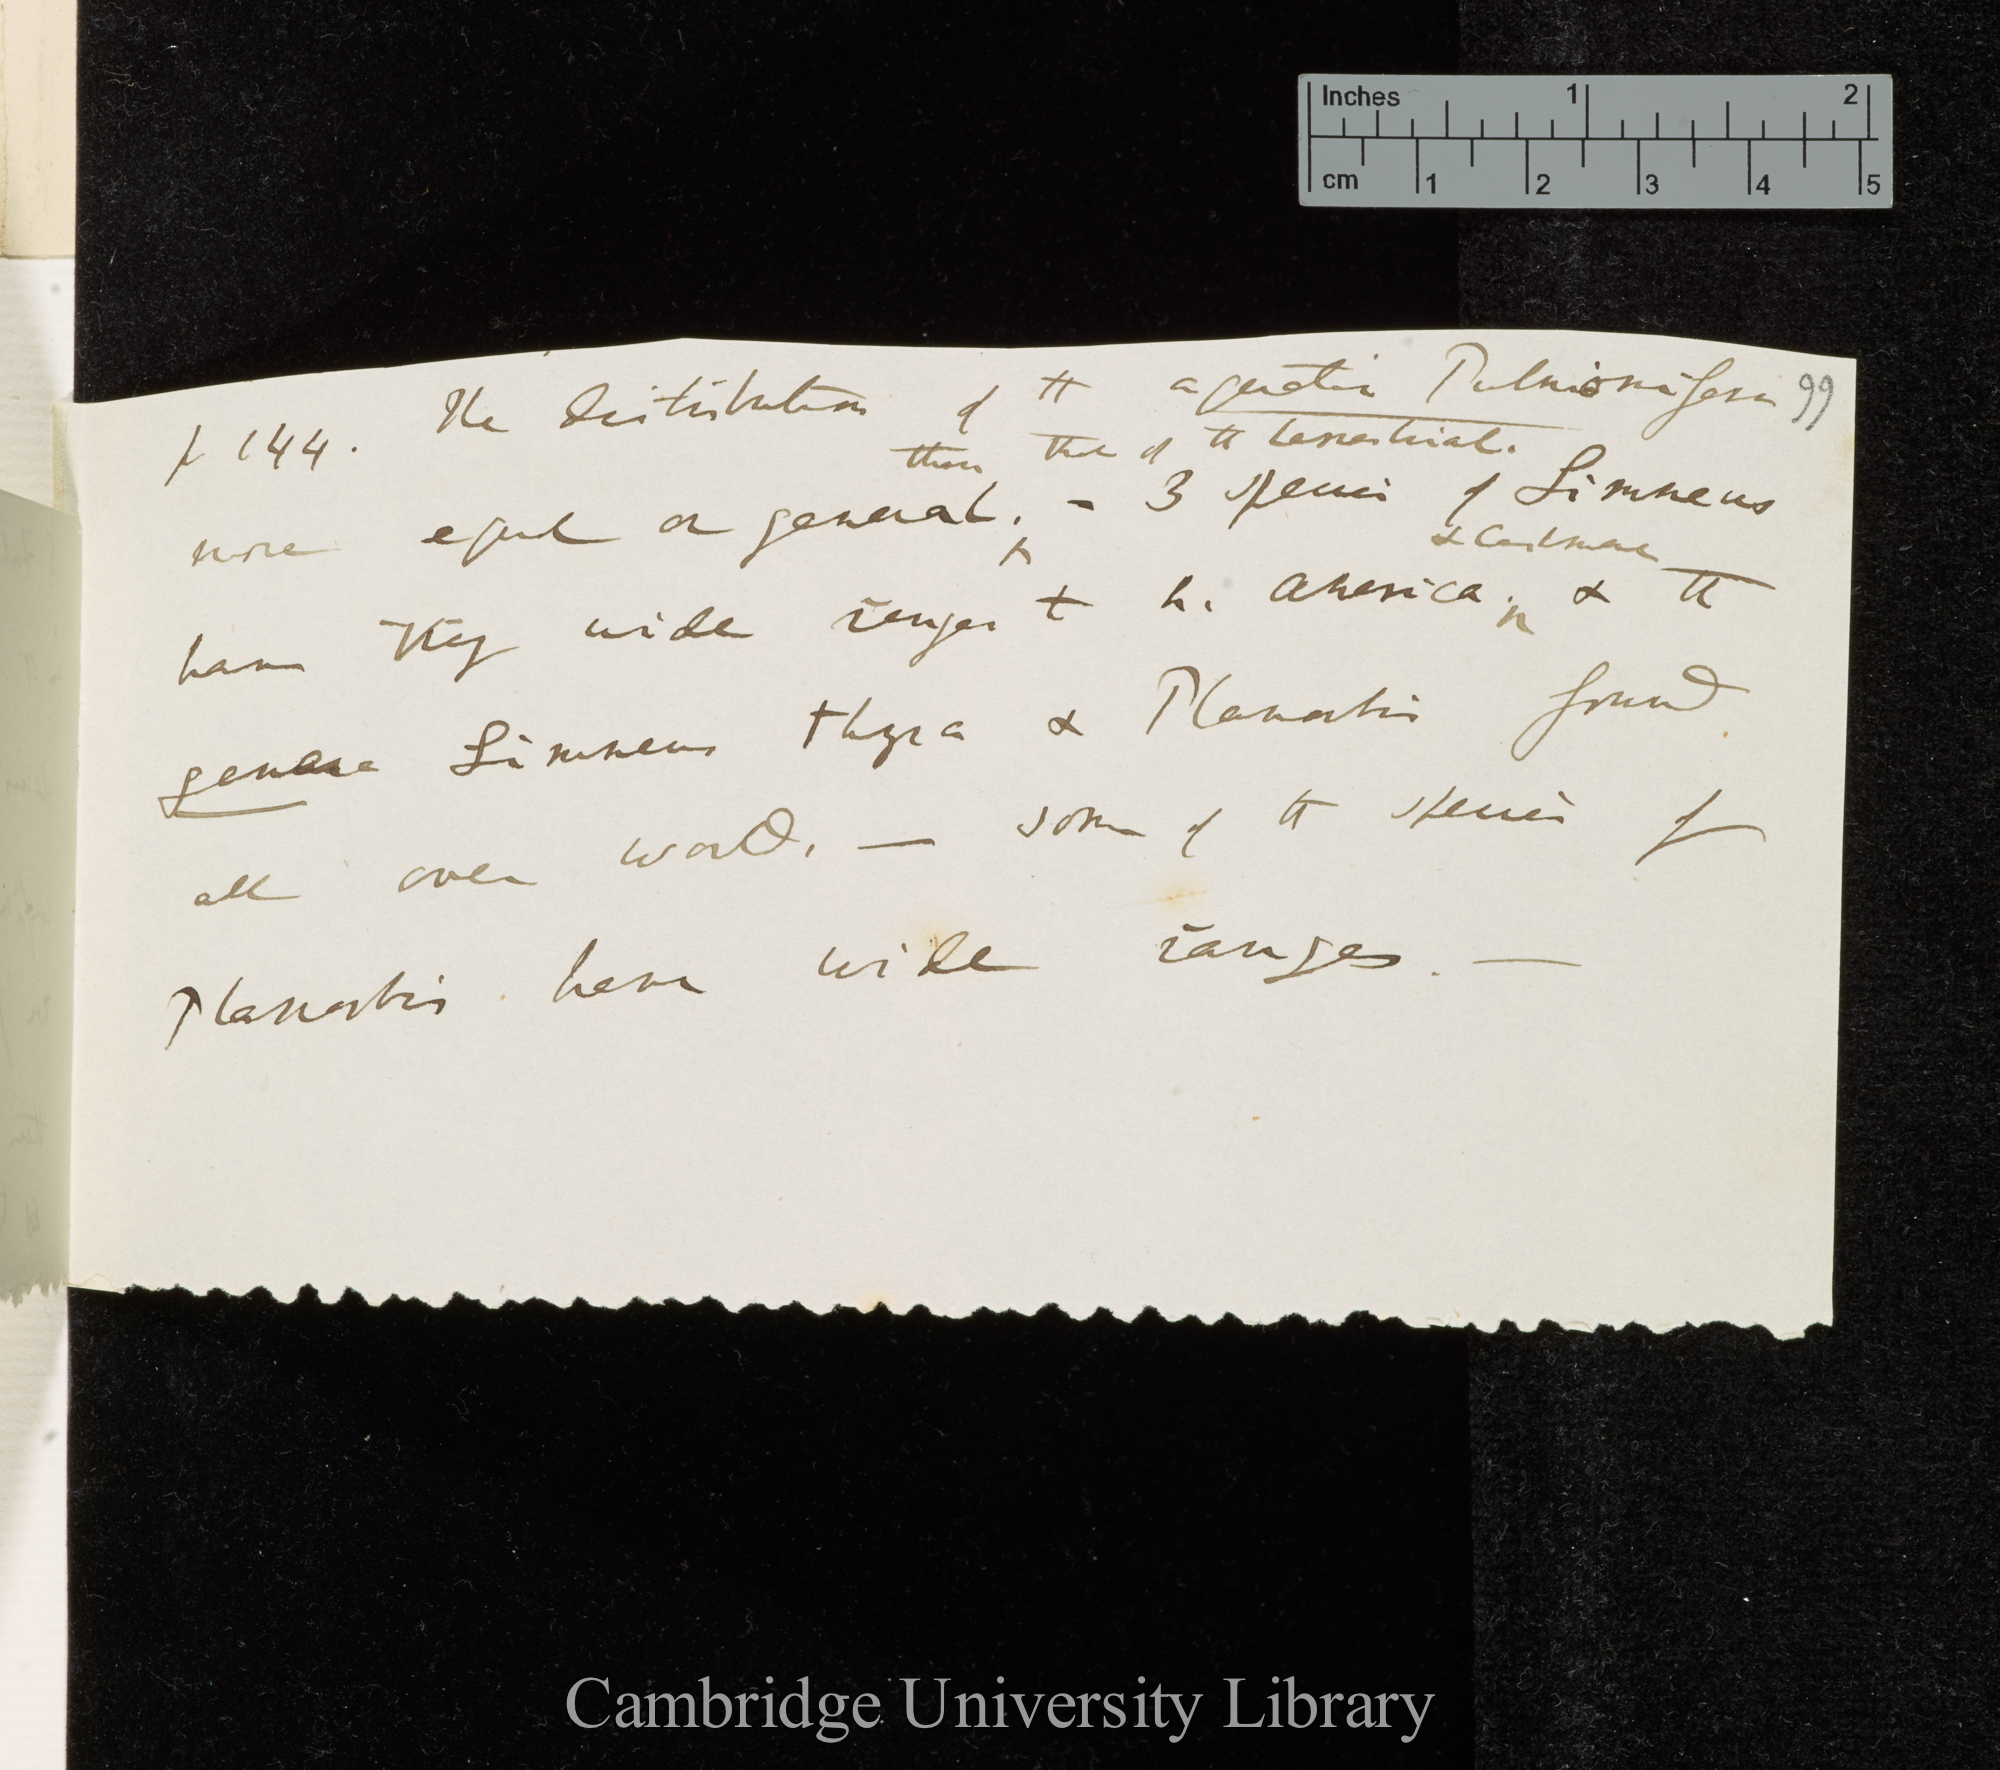 Inches 1 2
cm 1 2 3 4 5
99
p 144. The distribution of the aquatic Pulmonifera
than that of the terrestrial.
more equal or general, - 3 species of Limneus
& Cashmere
have very wide ranges to N. America, & the
genera Limneus Physa & Planorbis found
all over world, — some of the species of
Planorbis have wide ranges. —
Cambridge University Library